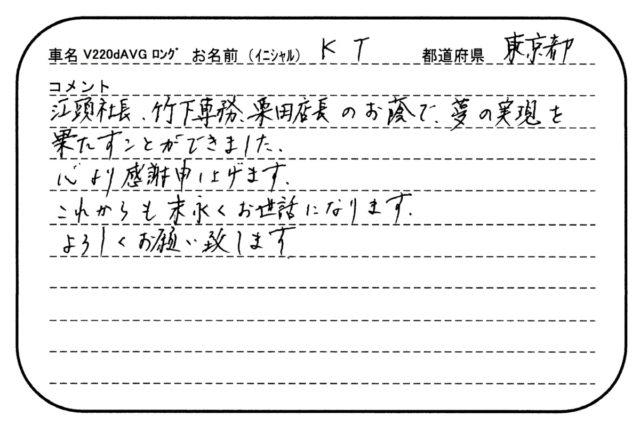 車名 V220dAVG ロング お名前 (イニシャル) K T 都道府県 東京都
コメント
江頭社長、竹下専務、栗田店長のお蔭で、夢の実現を
果たすことができました。
心より感謝申上げます。
これからも末永くお世話になります。
よろしくお願い致します